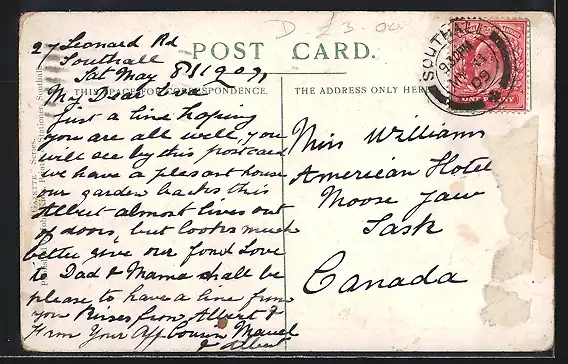 D £3.00
POST CARD.
THIS SPACE FOR CORRESPONDENCE.
THE ADDRESS ONLY HERE
27 Leonard Rd
Southall
Sat May 8/1909,
My Dear
Just a line hoping
you are all well, you
will see by this postcard
we have a pleasant house
our garden backs this
Albert almost lives out
of doors, but looks much
better give our fond Love
to Dad & Mama shall be
please to have a line from
you Kisses from Albert &
From Your Aff Cousin Maud
& Albert
Miss Williams
American Hotel
Moose Jaw
Sask
Canada
SOUTHALL
09
ONE PENNY